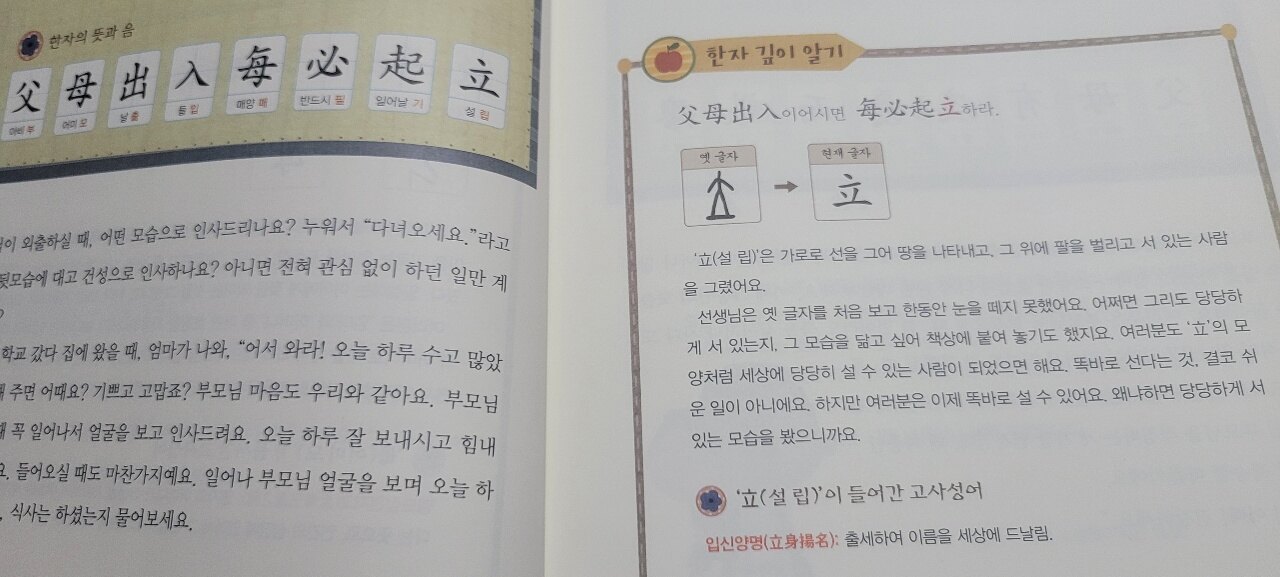 한자의 뜻과 음
父 母 出 入 每 必 起 立
아비 부 어미 모 날 출 들 입 매양 매 반드시 필 일어날 기 설 립
외출하실 때, 어떤 모습으로 인사드리나요? 누워서 “다녀오세요.”라고
뒷모습에 대고 건성으로 인사하나요? 아니면 전혀 관심 없이 하던 일만 계
?
학교 갔다 집에 왔을 때, 엄마가 나와, “어서 와라! 오늘 하루 수고 많았
주면 어때요? 기쁘고 고맙죠? 부모님 마음도 우리와 같아요. 부모님
꼭 일어나서 얼굴을 보고 인사드려요. 오늘 하루 잘 보내시고 힘내
요. 들어오실 때도 마찬가지예요. 일어나 부모님 얼굴을 보며 오늘 하
, 식사는 하셨는지 물어보세요.
한자 깊이 알기
父母出入이어시면 每必起立하라.
옛 글자 현재 글자
立
‘立(설 립)’은 가로로 선을 그어 땅을 나타내고, 그 위에 팔을 벌리고 서 있는 사람
을 그렸어요.
선생님은 옛 글자를 처음 보고 한동안 눈을 떼지 못했어요. 어쩌면 그리도 당당하
게 서 있는지, 그 모습을 닮고 싶어 책상에 붙여 놓기도 했지요. 여러분도 ‘立’의 모
양처럼 세상에 당당히 설 수 있는 사람이 되었으면 해요. 똑바로 선다는 것, 결코 쉬
운 일이 아니에요. 하지만 여러분은 이제 똑바로 설 수 있어요. 왜냐하면 당당하게 서
있는 모습을 봤으니까요.
‘立(설 립)’이 들어간 고사성어
입신양명(立身揚名): 출세하여 이름을 세상에 드날림.